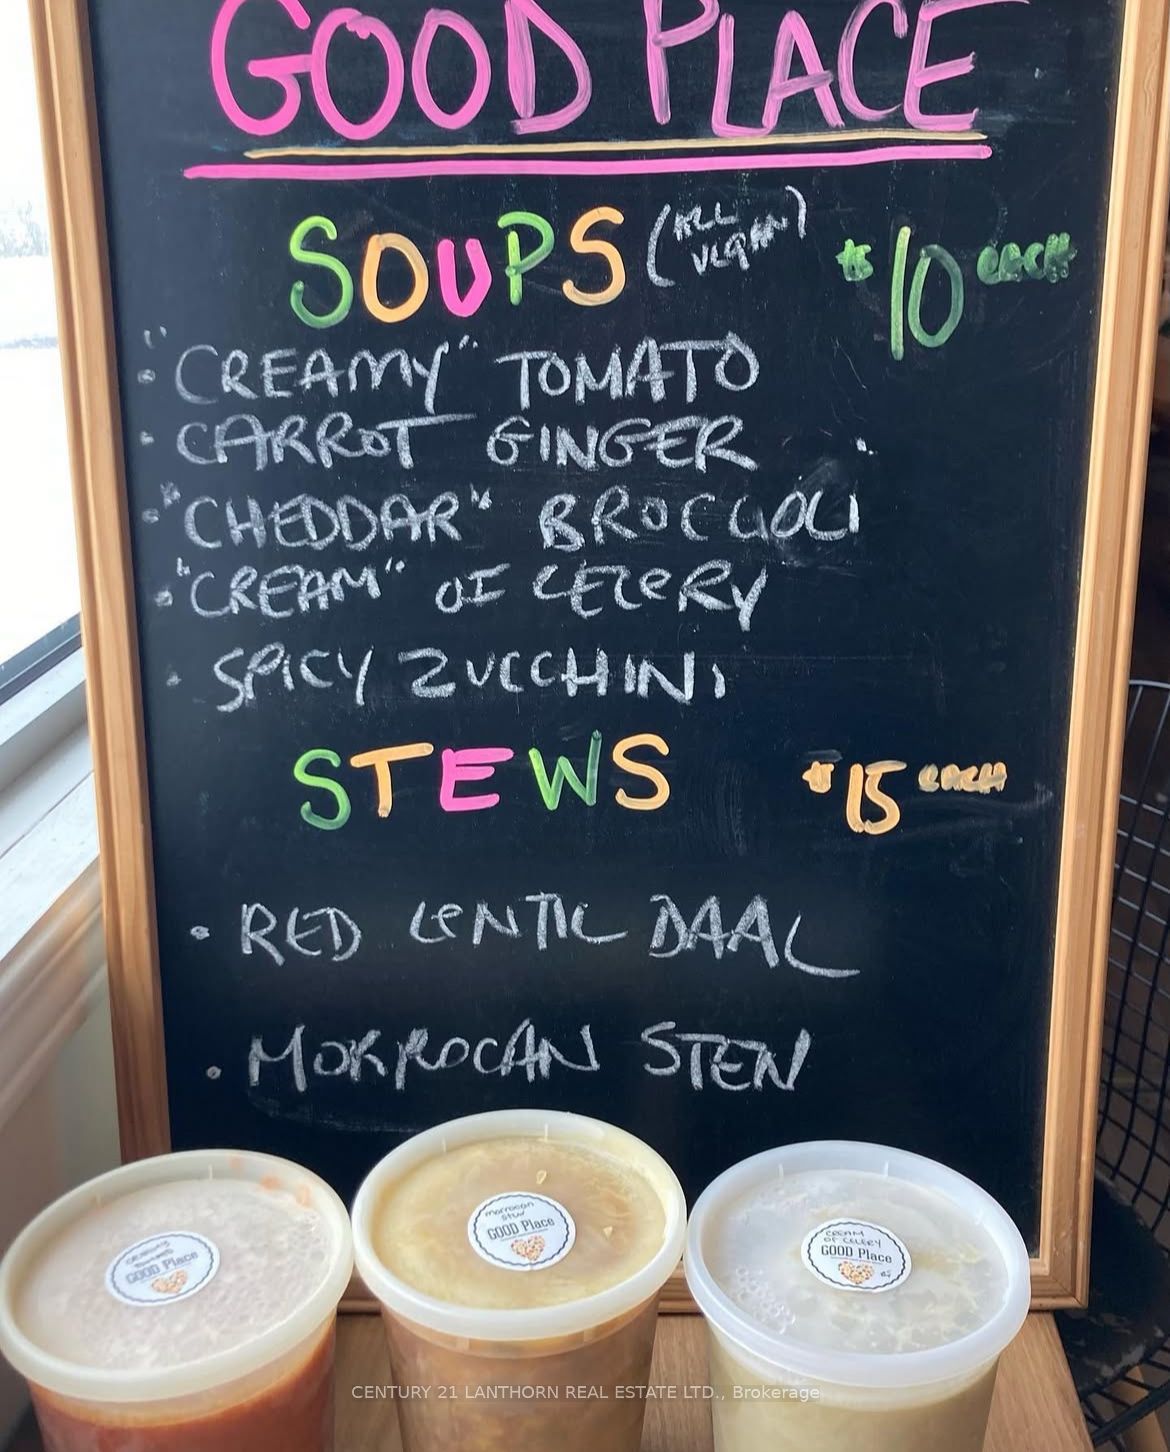 GOOD PLACE
SOUPS (ALL VEGAN) $10 EACH
• "CREAMY" TOMATO
• CARROT GINGER
• "CHEDDAR" BROCCLOLI
• "CREAM" OF CELERY
• SPICY ZUCCHINI
STEWS $15 EACH
• RED LENTIL DAAL
• MORROCAN STEW
GOOD Place
morrocan
stew
GOOD Place
CREAM
OF CELERY
GOOD Place
CENTURY 21 LANTHORN REAL ESTATE LTD., Brokerage